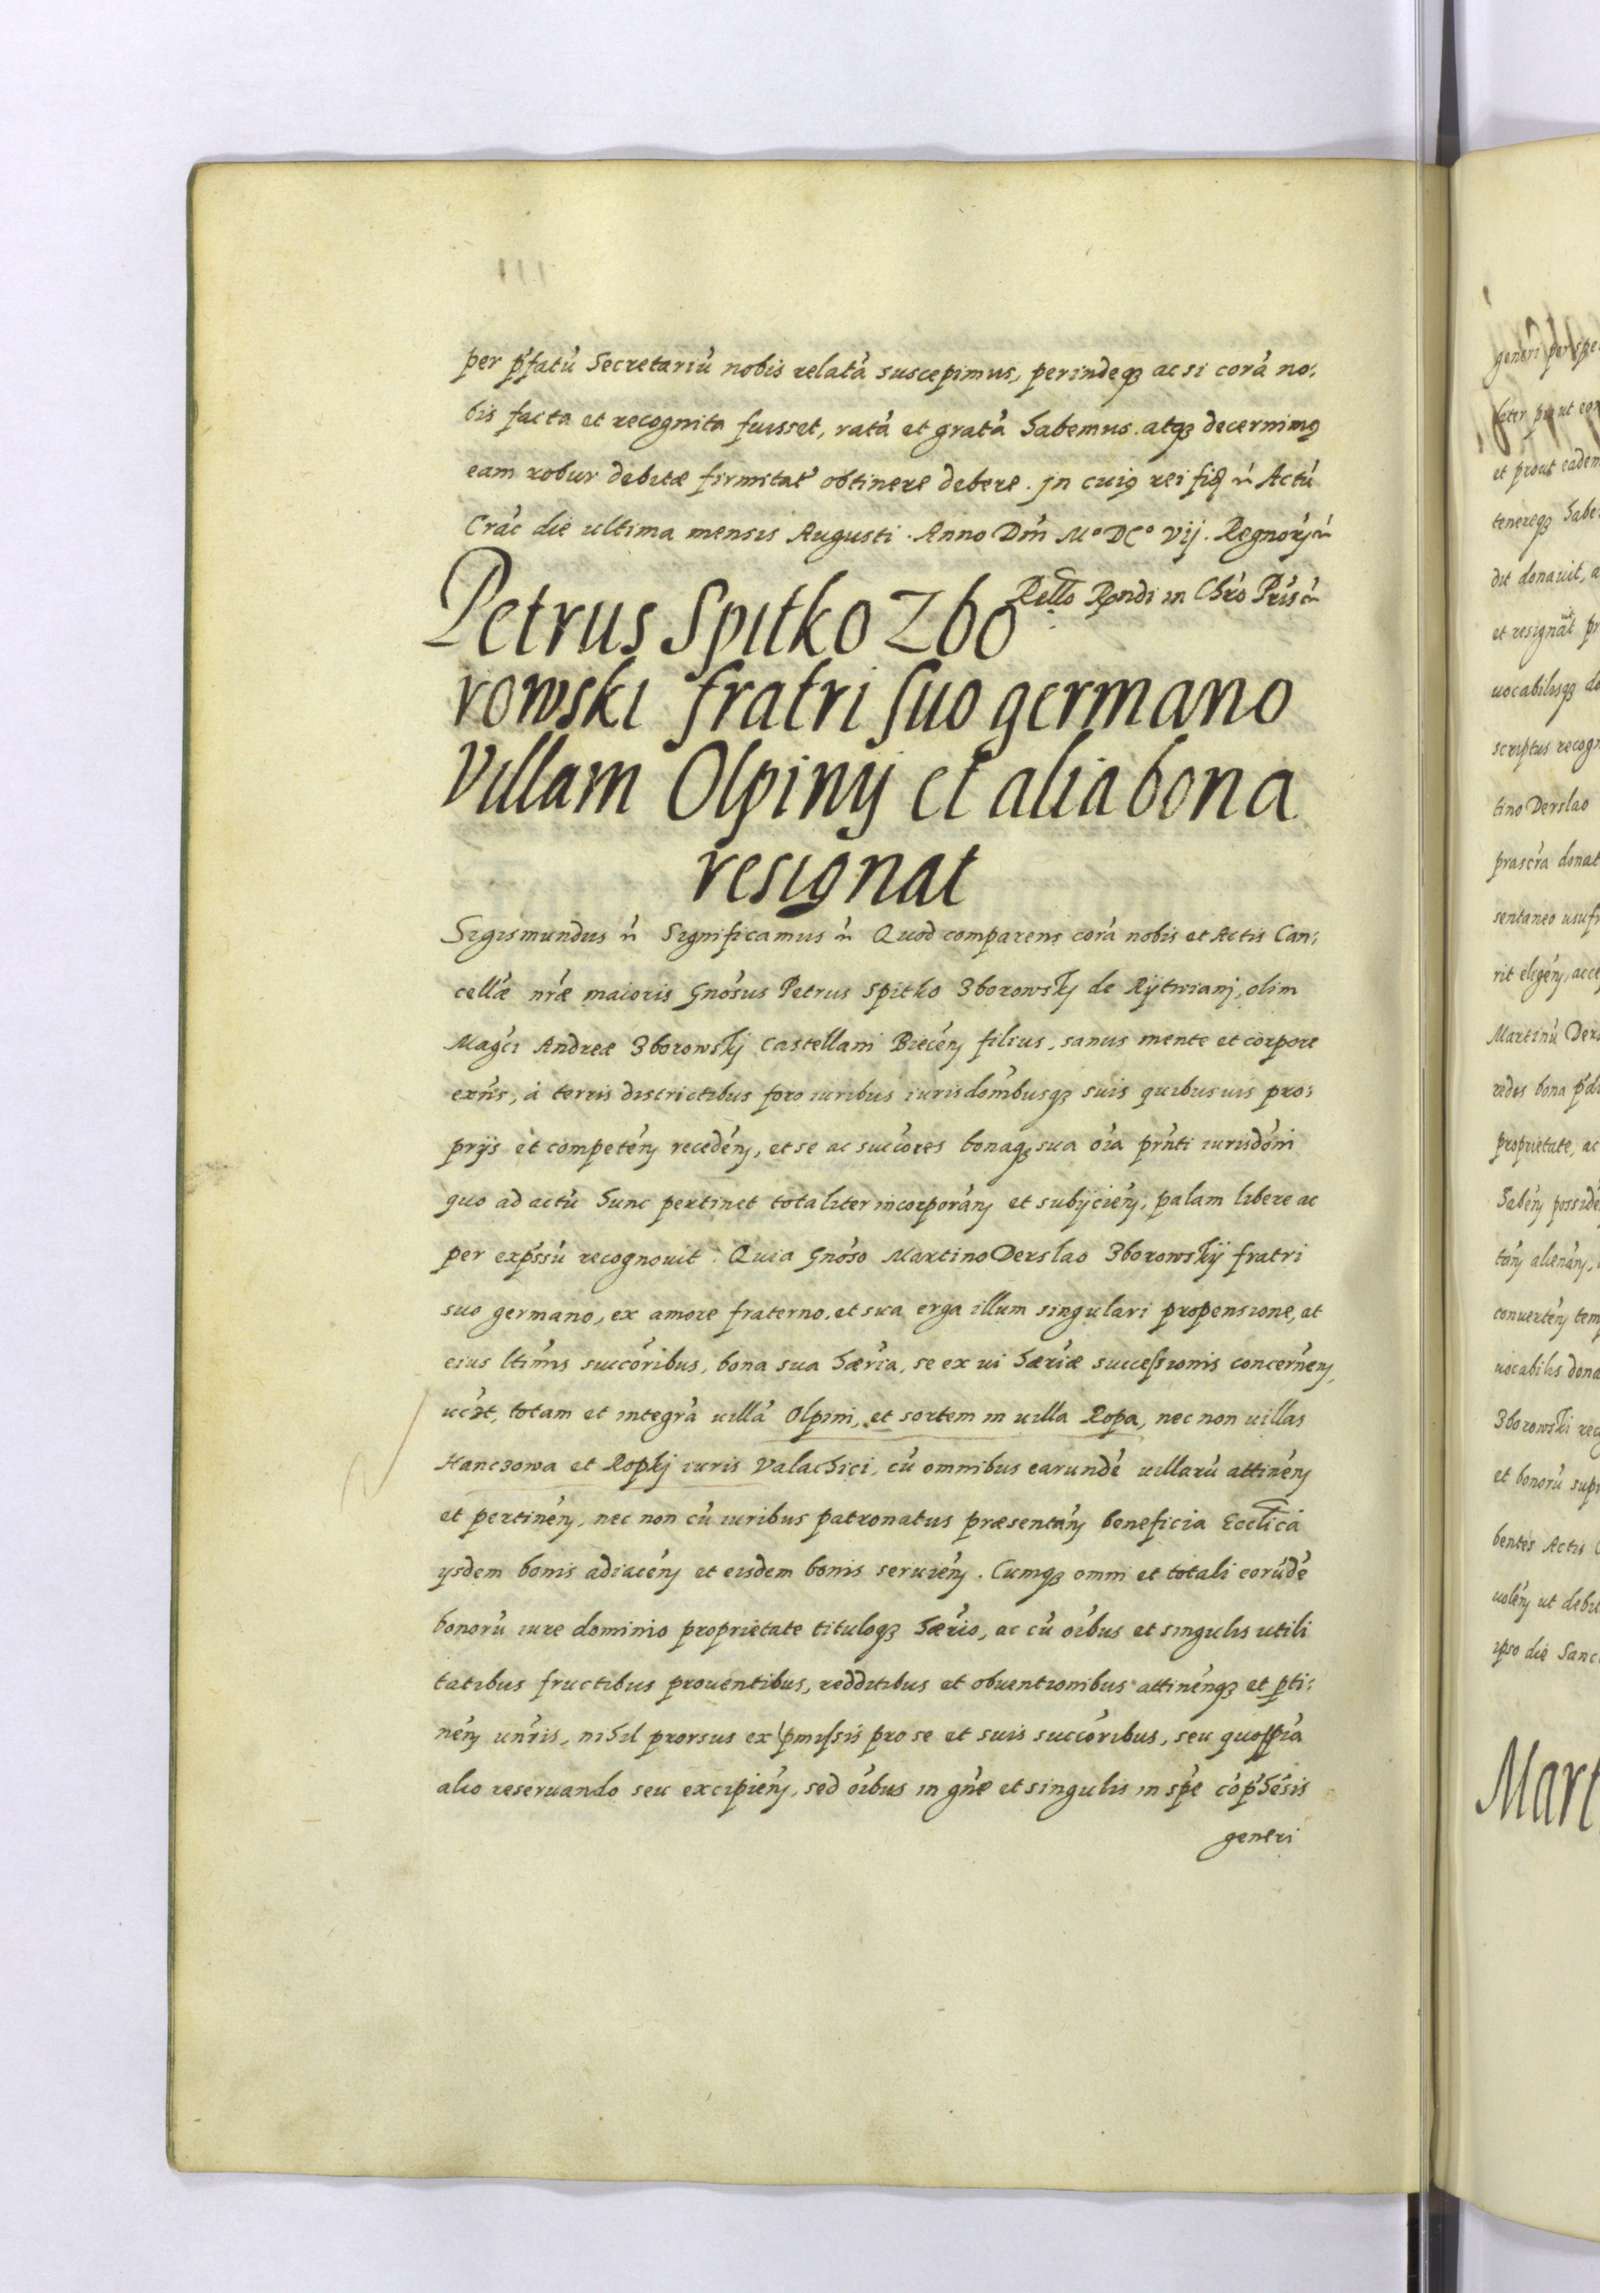 per p̓fatu̓ Secretariu̓ nobis relata̓ suscepimus, perindeqꝫ ac si cora̓ no:
bis facta et recognita fuisset, rata̓ et grata̓ habemus. atqꝫ decernimꝰ
eam robur debitæ firmitat̓ obtinere debere. jn cuiꝰ rei fiđ n̓ Actu̓
Crac̓ die ultima mensis Augusti. Anno Dm̓ Mᵒ DCᵒ Vij. Regnorȷ n̓
Rello Rondi in Chr̓o Pris n̓
Petrus Spitko Zbo
rowski fratri suo germano
Villam Olpiny et alia bona
resignat
Sigismundus n̓ Significamus n̓ Quod comparens cora̓ nobis et Actis Can:
cell̓æ nr̓æ maioris Gno̓sus Petrus Spitko Zborowskj de Rÿtwianj, olim
Mag̓ci Andreæ Zborowskj Castellani Biecen̓ filius, sanus mente et corpore
exn̓s, à terris districtibus foro iuribus iurisdo̓mbusqꝫ suis quibusuis pro:
prijs et competen̓ receden̓, et se ac succo̓res bonaqꝫ sua oi̓a prn̓ti iurisdo̓ni
quo ad actu̓ hunc pertinet totaliter incorporan̓ et subijcien̓, palam libere ac
per exp̓ssu̓ recognouit. Quia Gno̓so Martino Derslao Zborowskÿ fratri
suo germano, ex amore fraterno, et sua erga illum singulari propensione, et
eius ltim̓is succo̓ribus, bona sua hær̓ia, se ex ui hær̓iæ successionis concernen̓,
uc̓ꝫt, totam et integra̓ uilla̓ Olpini, et sortem in uilla Ropa, nec non uillas
Hanczowa et Ropkj iuris Valachici, cu̓ omnibus earunde̓ uillaru̓ attinen̓
et pertinen̓, nec non cu̓ iuribus patronatus præsentan̓ beneficia Eccl̓ica
ysdem bonis adiacen̓ et eisdem bonis seruien̓. Cumqꝫ omni et totali eorúde̓
bonoru̓ iure dominio proprietate tituloqꝫ hær̓io, ac cu̓ oi̓bus et singulis utili
tatibus fructibus prouentibus, redditibus et obuentionibus attinen̓qꝫ et ꝑti:
nen̓ un̓ris, nihil prorsus ex p̓missis pro se et suis succo̓ribus, seu quospia̓
alio reseruando seu excipien̓, sed oi̓bus in gn̓e et singulis in sp̓e co̓p̓he̓sis
generi